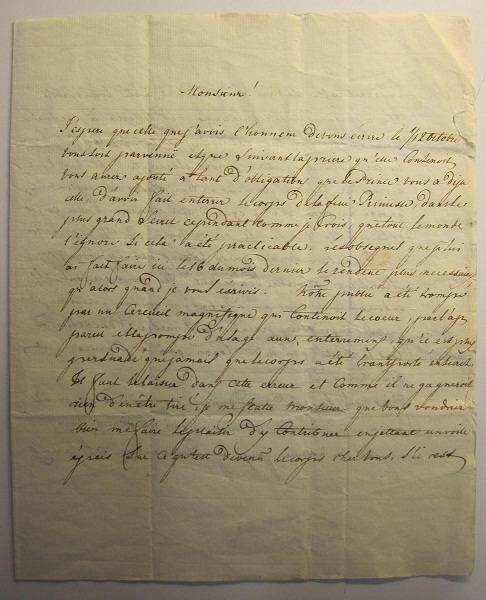 Monsieur!
J'espere que celle que j'avois l'honneur de vous ecrire le 1/12 Octobre
vous soit parvenuë et que suivant la priere qu'elle contenoit
vous aurez ajouté a tant d'obligations que le Prince vous a deja
celle, d'avoir fait enterrer le corps de la feüe Princesse, dans le
plus grand secret cependant comme je vois, que tout le monde
l'ignore si cela a été practicable, les obseques que je lui
ai fait faire ici le 16 du mois dernier le rendent plus necessaire
qu'alors quand je vous ecrivis. Nôtre public a été trompé
par un Cercueil magnifique qui contenoit le coeur, par l'ap
pareil et la pompe d'usage aux enterremens, qu'il est plus
persuadé que jamais que le corps a été transporté en secret
Il faut le laisser dans cette erreur et comme il ne gagneroit
rien d'en être tiré, je me flatte Monsieur que vous voudrez
bien me faire le plaisir d'y contribuer en jettant un voile
épais sur ce qu'est devenu le corps chez vous, s'il est